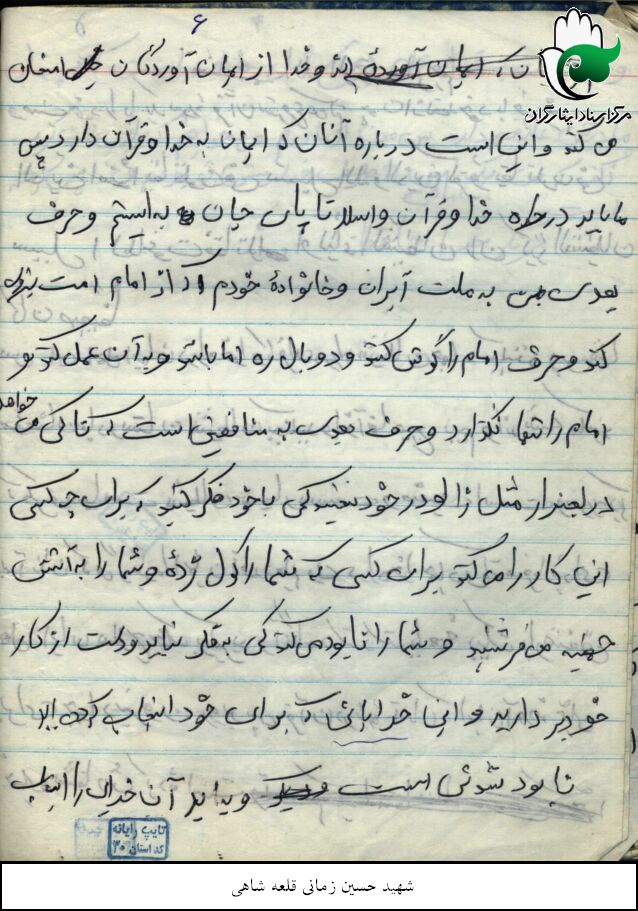 ۶
مرکز اسناد ایثارگران
ایمان آورده اند و خدا از ایمان آوردگان امتحان
می کند و این است درباره آنان که ایمان به خدا و قرآن دارد پس
ما باید در راه خدا و قرآن و اسلام تا پای جان به ایستیم و حرف
بعدی من به ملت ایران و خانوادهٔ خودم که از امام امت
کند و حرف امام را گوش کنند و دوبال ره اما باشد و به آن عمل کند و
امام را تنها نگذارد و حرف بعدی به منافقین است که تا کی می خواهد
در لجنزار مثل زالو در خود کمی باخود فکر کنید که برای چه کسی
این کار را می کند برای کسی که شما را گول زدهٔ و شما را به آتش
جهنم می فرستد و شما را نابود می کند کمی به فکر بیاید و دست از کار
خود بر دارید و این خدایانی که برای خود انتخاب کرده اید
نابود شدنی است و بیاید آن خدای را
تایپ رایانه
کد استان ۳۰
شهید حسین زمانی قلعه شاهی